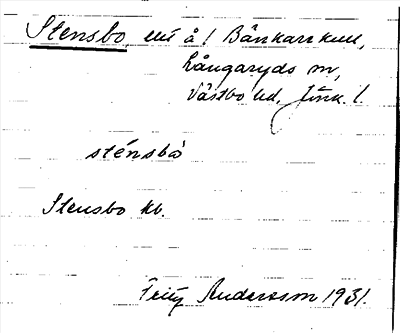 Stensbo, enl å! Bänkarskull,
Långaryds sn,
Västbo hd, Jönk. l.
sténsbò
Stensbo kb.
Fritz Andersson 1931.